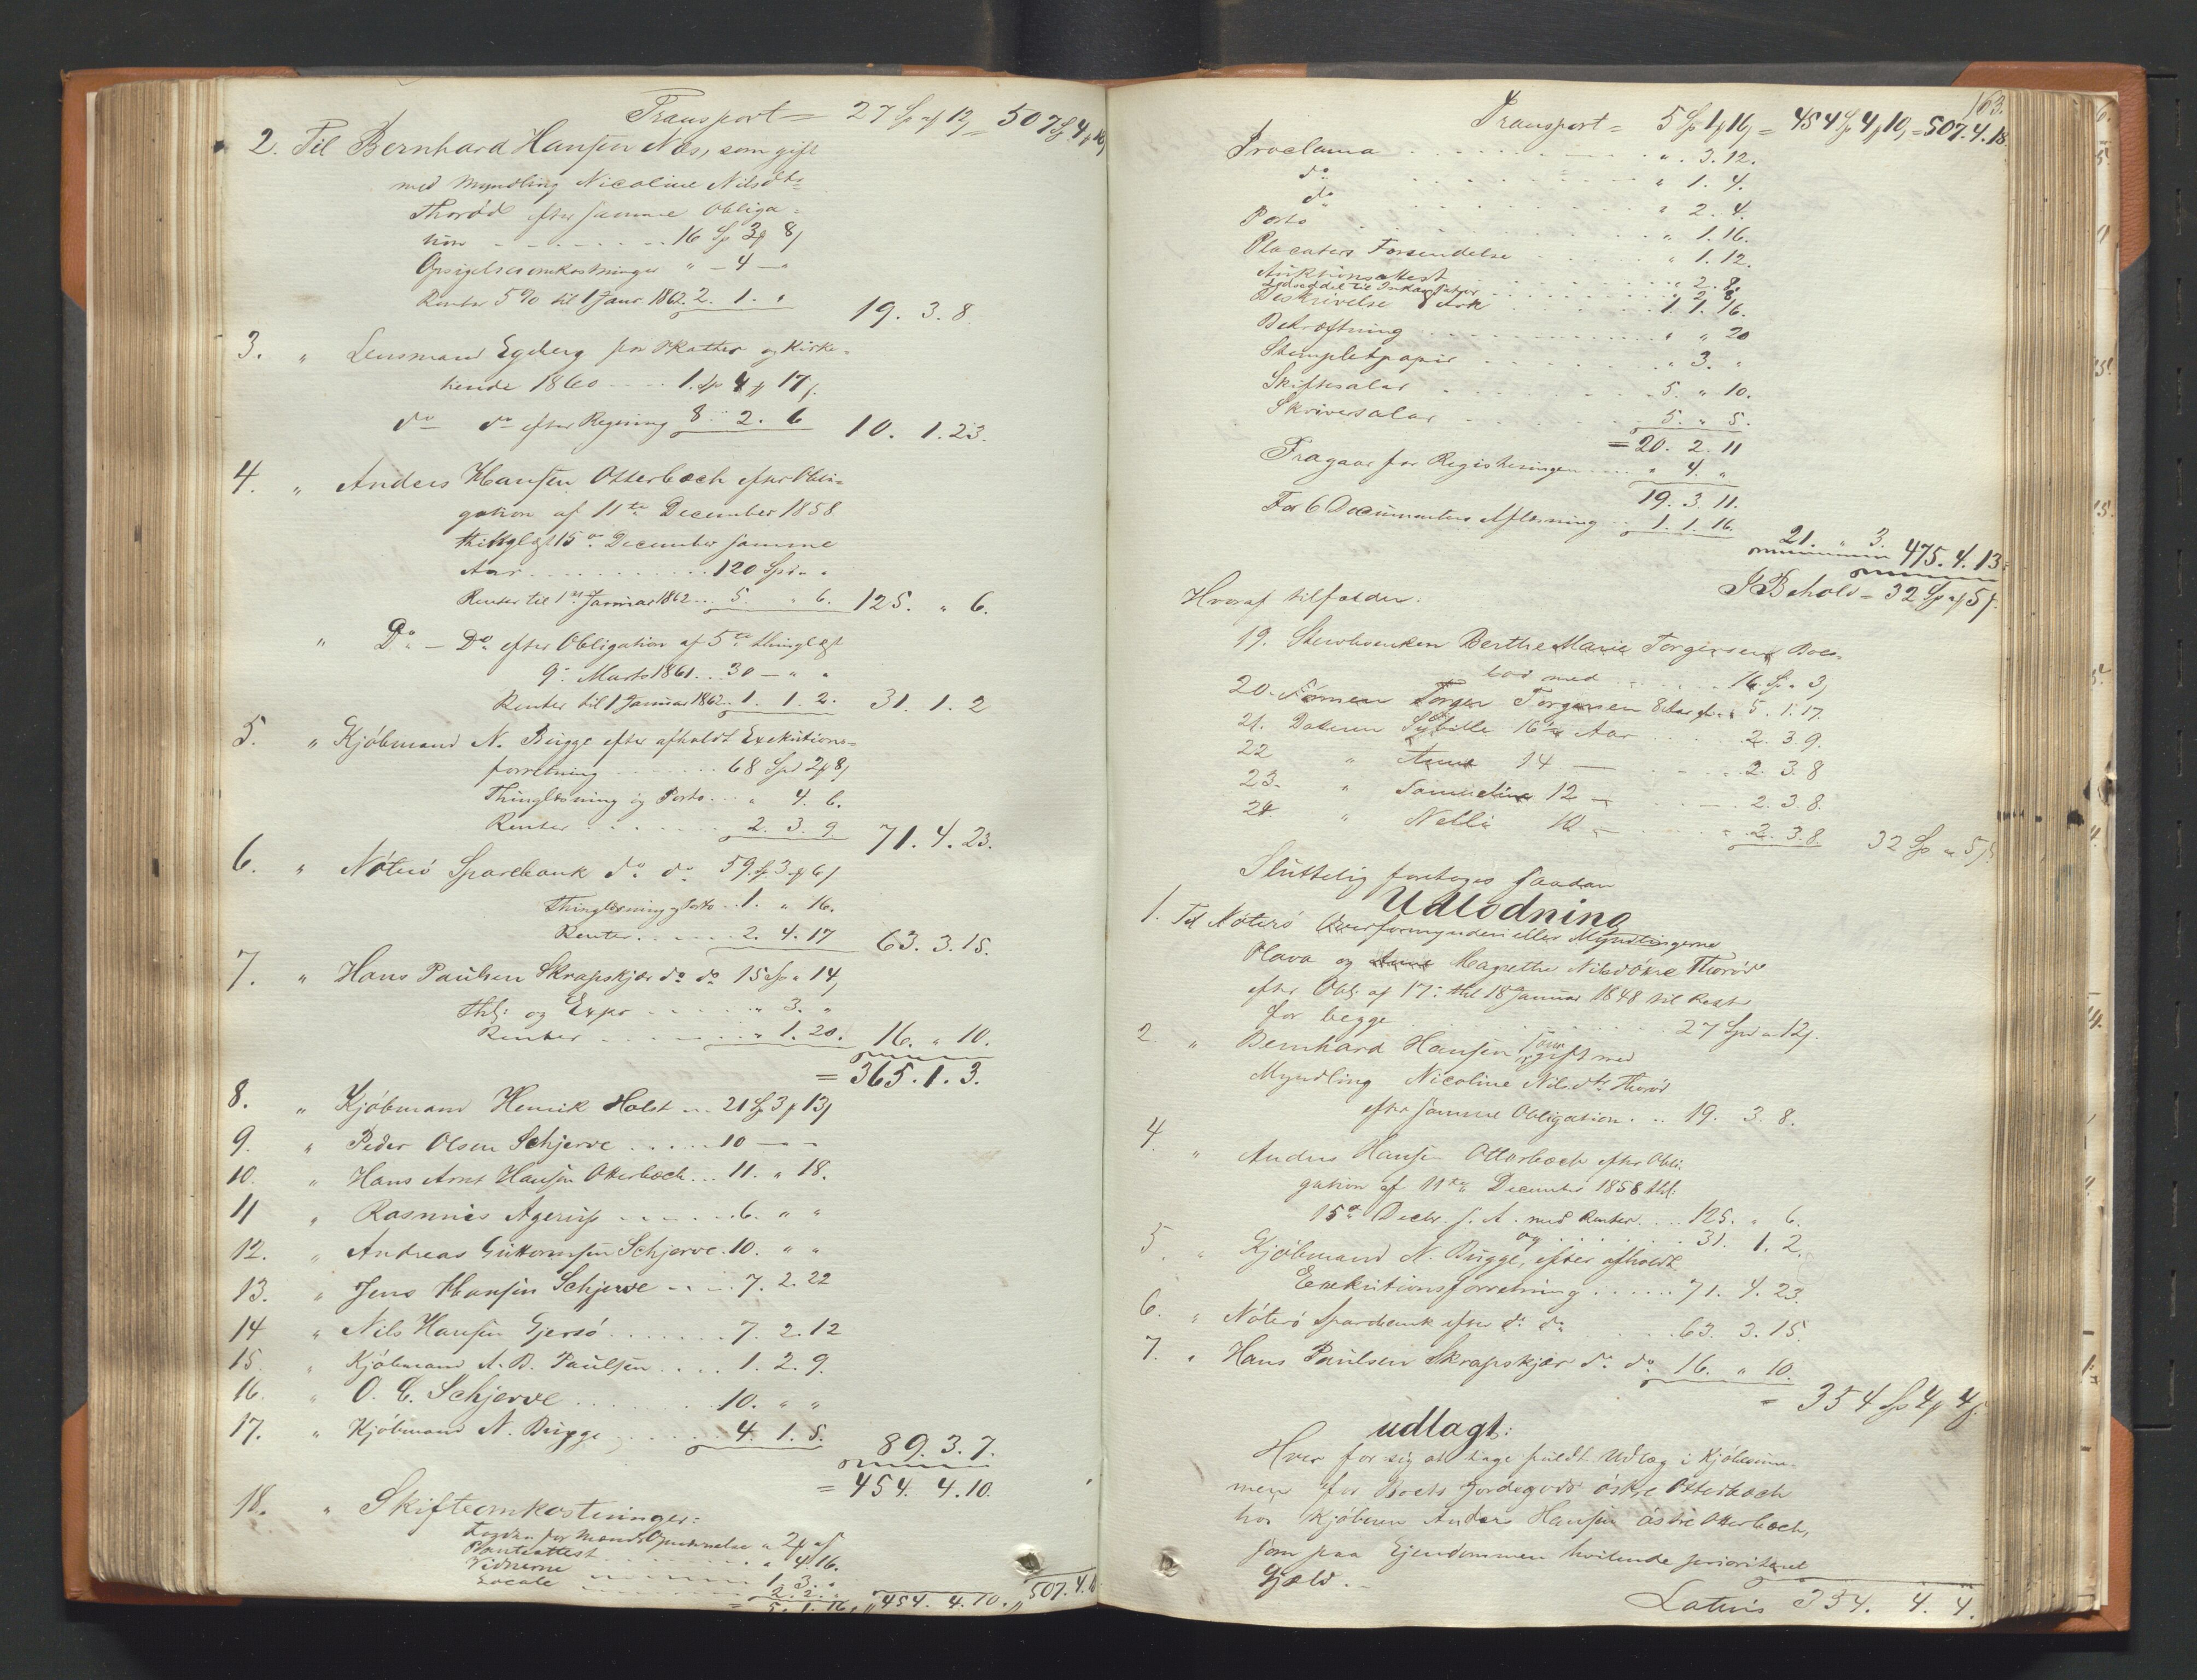 Transport = 27 Sp " 12 = 507 Sp 4 18
2. Til Bernhard Hansen Næs, som gift
med Myndling Nicoline Nilsdtr
Thorød efter samme Obliga-
tion 16 Sp 3 8
Opsigelsesomkostninger " 4 "
Renter 5% til 1 Janr 1862 2. 1. " 19. 3. 8
3. " Lensmand Egeberg for Skatter og Kirke-
tiende 1860 1 Sp 4 17
do do efter Regning 8. 2. 6 10. 1. 23.
4. " Anders Hansen Otterbech efter Obli-
gation af 11te December 1858
thinglæst 15de December samme
Aar 120 Spd "
Renter til 1ste Januar 1862 5. " 6. 125. " 6.
" Do Do efter Obligation af 5te thinglæst
9de Marts 1861 30 " "
Renter til 1 Januar 1862 1. 1. 2. 31. 1. 2
5. " Kjøbmand N. Bugge efter afholdt Exekutions-
forretning 68 Spd 2 8
Thinglæsning og Porto " 4. 6.
Renter 2. 3. 9. 71. 4. 23.
6. " Nøterø Sparebank do do 59 Sp 3 6
Thinglæsning og Porto 1. " 16.
Renter 2. 4. 17 63. 3. 15.
7. " Hans Paulsen Skrapskjær do do 15 Sp " 14
Thl: og Expo " 3. "
Renter " 1. 20. 16. " 10.
= 365. 1. 3.
8. " Kjøbmand Henrik Holst 21 Sp 3 13
9. " Peder Olsen Schjerve 10 — —
10. " Hans Arnt Hansen Otterbech 11. " 18.
11 " Rasmus Agerup 6. " "
12. " Andreas Guttormsen Schjerve 10. " "
13. " Jens Hansen Schjerve 7. 2. 22
14 " Nils Hansen Gjersø 7. 2. 12
15. " Kjøbmand A. B. Paulsen 1. 2. 9.
16. " O. C. Schjerve 10. " "
17. " Kjøbmand N. Bugge 4. 1. 5. 89. 3. 7.
= 454. 4. 10.
18. " Skifteomkostninger:
Fogden for Mænds Opnævnelse " 2
Panteattest " 4 16.
Vidnerne 1. 3. "
Locale 2. 2. "
= 5. 1. 16. " 454. 4. 10. " 507. 4. 18
163.
Transport = 5 Sp 1 16 = 454 Sp 4 10 = 507. 4. 18
Proclama " 3. 12.
do " 1. 4.
do " 2. 4.
Porto " 1. 16.
Placaters Forsendelse " 1. 12.
Auktionsattest " 2. 8.
til " 2. 8.
Beskrivelse 8 Ark 1. 1. 16.
Bekræftning " " 20
Stempletpapir " 3. "
Skiftesalar 5. " 10.
Skriversalar 5. " 5.
= 20. 2. 11
Fragaar for Registeringen " 4. "
19. 3. 11.
For 6 Documenters Aflæsning 1. 1. 16. 21. " 3. 475. 4. 13.
I Behold = 32 Sp " 5
Hvoraf tilfalder:
19. Stervboenken Berthe Marie Torgersen Boes-
lod med 16 Sp " 3
20. Sønnen Torger Torgersen 8 Aar gl. 5. 1. 17.
21. Datteren Sybille 16 Aar 2. 3. 9.
22 " Anne 14 — 2. 3. 8
23. " Samueline 12 — 2. 3. 8.
24 " Nelli 10 — 2. 3. 8. 32 Sp " 5
Sluttelig foretoges saadan
Udlodning
1. Til Nøterø Overformynderi eller Myndlingerne
Olava og Magrethe Nilsdøttre Thorød
efter Obl: af 17de thl 18 Januar 1848 til Rest
for begge 27 Spd " 12
2 " Bernhard Hansen som gift med
Myndling Nicoline Nilsdtr Thorød
efter samme Obligation 19. 3. 8.
4. " Anders Hansen Otterbech efter Obli-
gation af 11te December 1858 thl:
15de Decbr. s. A. med Renter 125. " 6.
og 31. 1. 2.
5 " Kjøbmand N. Bugge, efter afholdt
Exekutionsforretning 71. 4. 23.
6. " Nøterø Sparebank efter do do 63. 3. 15.
7. " Hans Paulsen Skrapskjær do do 16. " 10.
= 354 Sp 4 4
udlagt:
Hver for sig at tage fuldt Udlæg i Kjøbesum-
men for Boets Jordegods østre Otterbech
hos Kjøberen Anders Hansen østre Otterbech,
som paa Ejendommen hvilende prioriteret
Gjæld.
Latus 354. 4. 4.